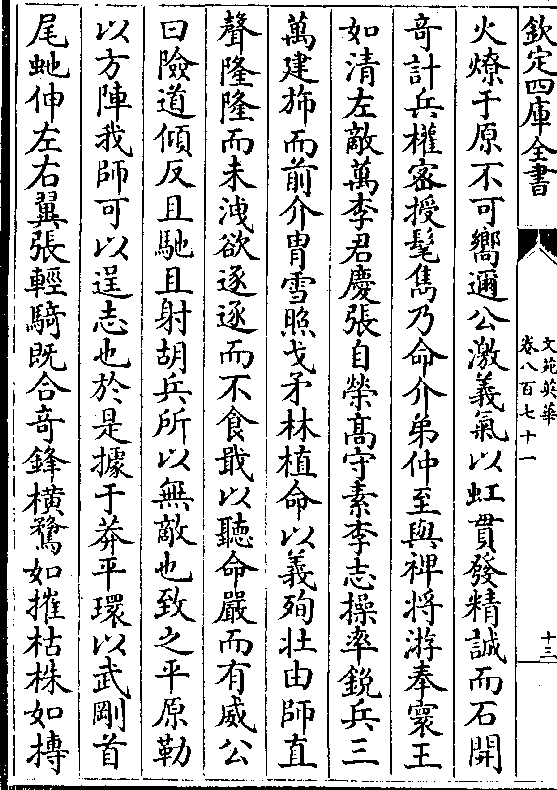 欽定四庫全書
文苑英華
卷八百七十一
十三
火燎于原不可嚮邇公激義氣以虹貫發精誠而石開
竒計兵權密授髦雋乃命介弟仲至與裨將游奉寰王
如清左敵萬李君慶張自榮髙守素李志操率鋭兵三
萬建斾而前介胄雪照戈矛林植命以義殉壯由師直
聲隆隆而未洩欲逐逐而不食戢以聽命嚴而有威公
曰險道傾反且馳且射胡兵所以無敵也致之平原勒
以方陣我師可以逞志也於是據于莽平環以武剛首
尾虵伸左右翼張輕騎既合竒鋒横騖如摧枯株如摶